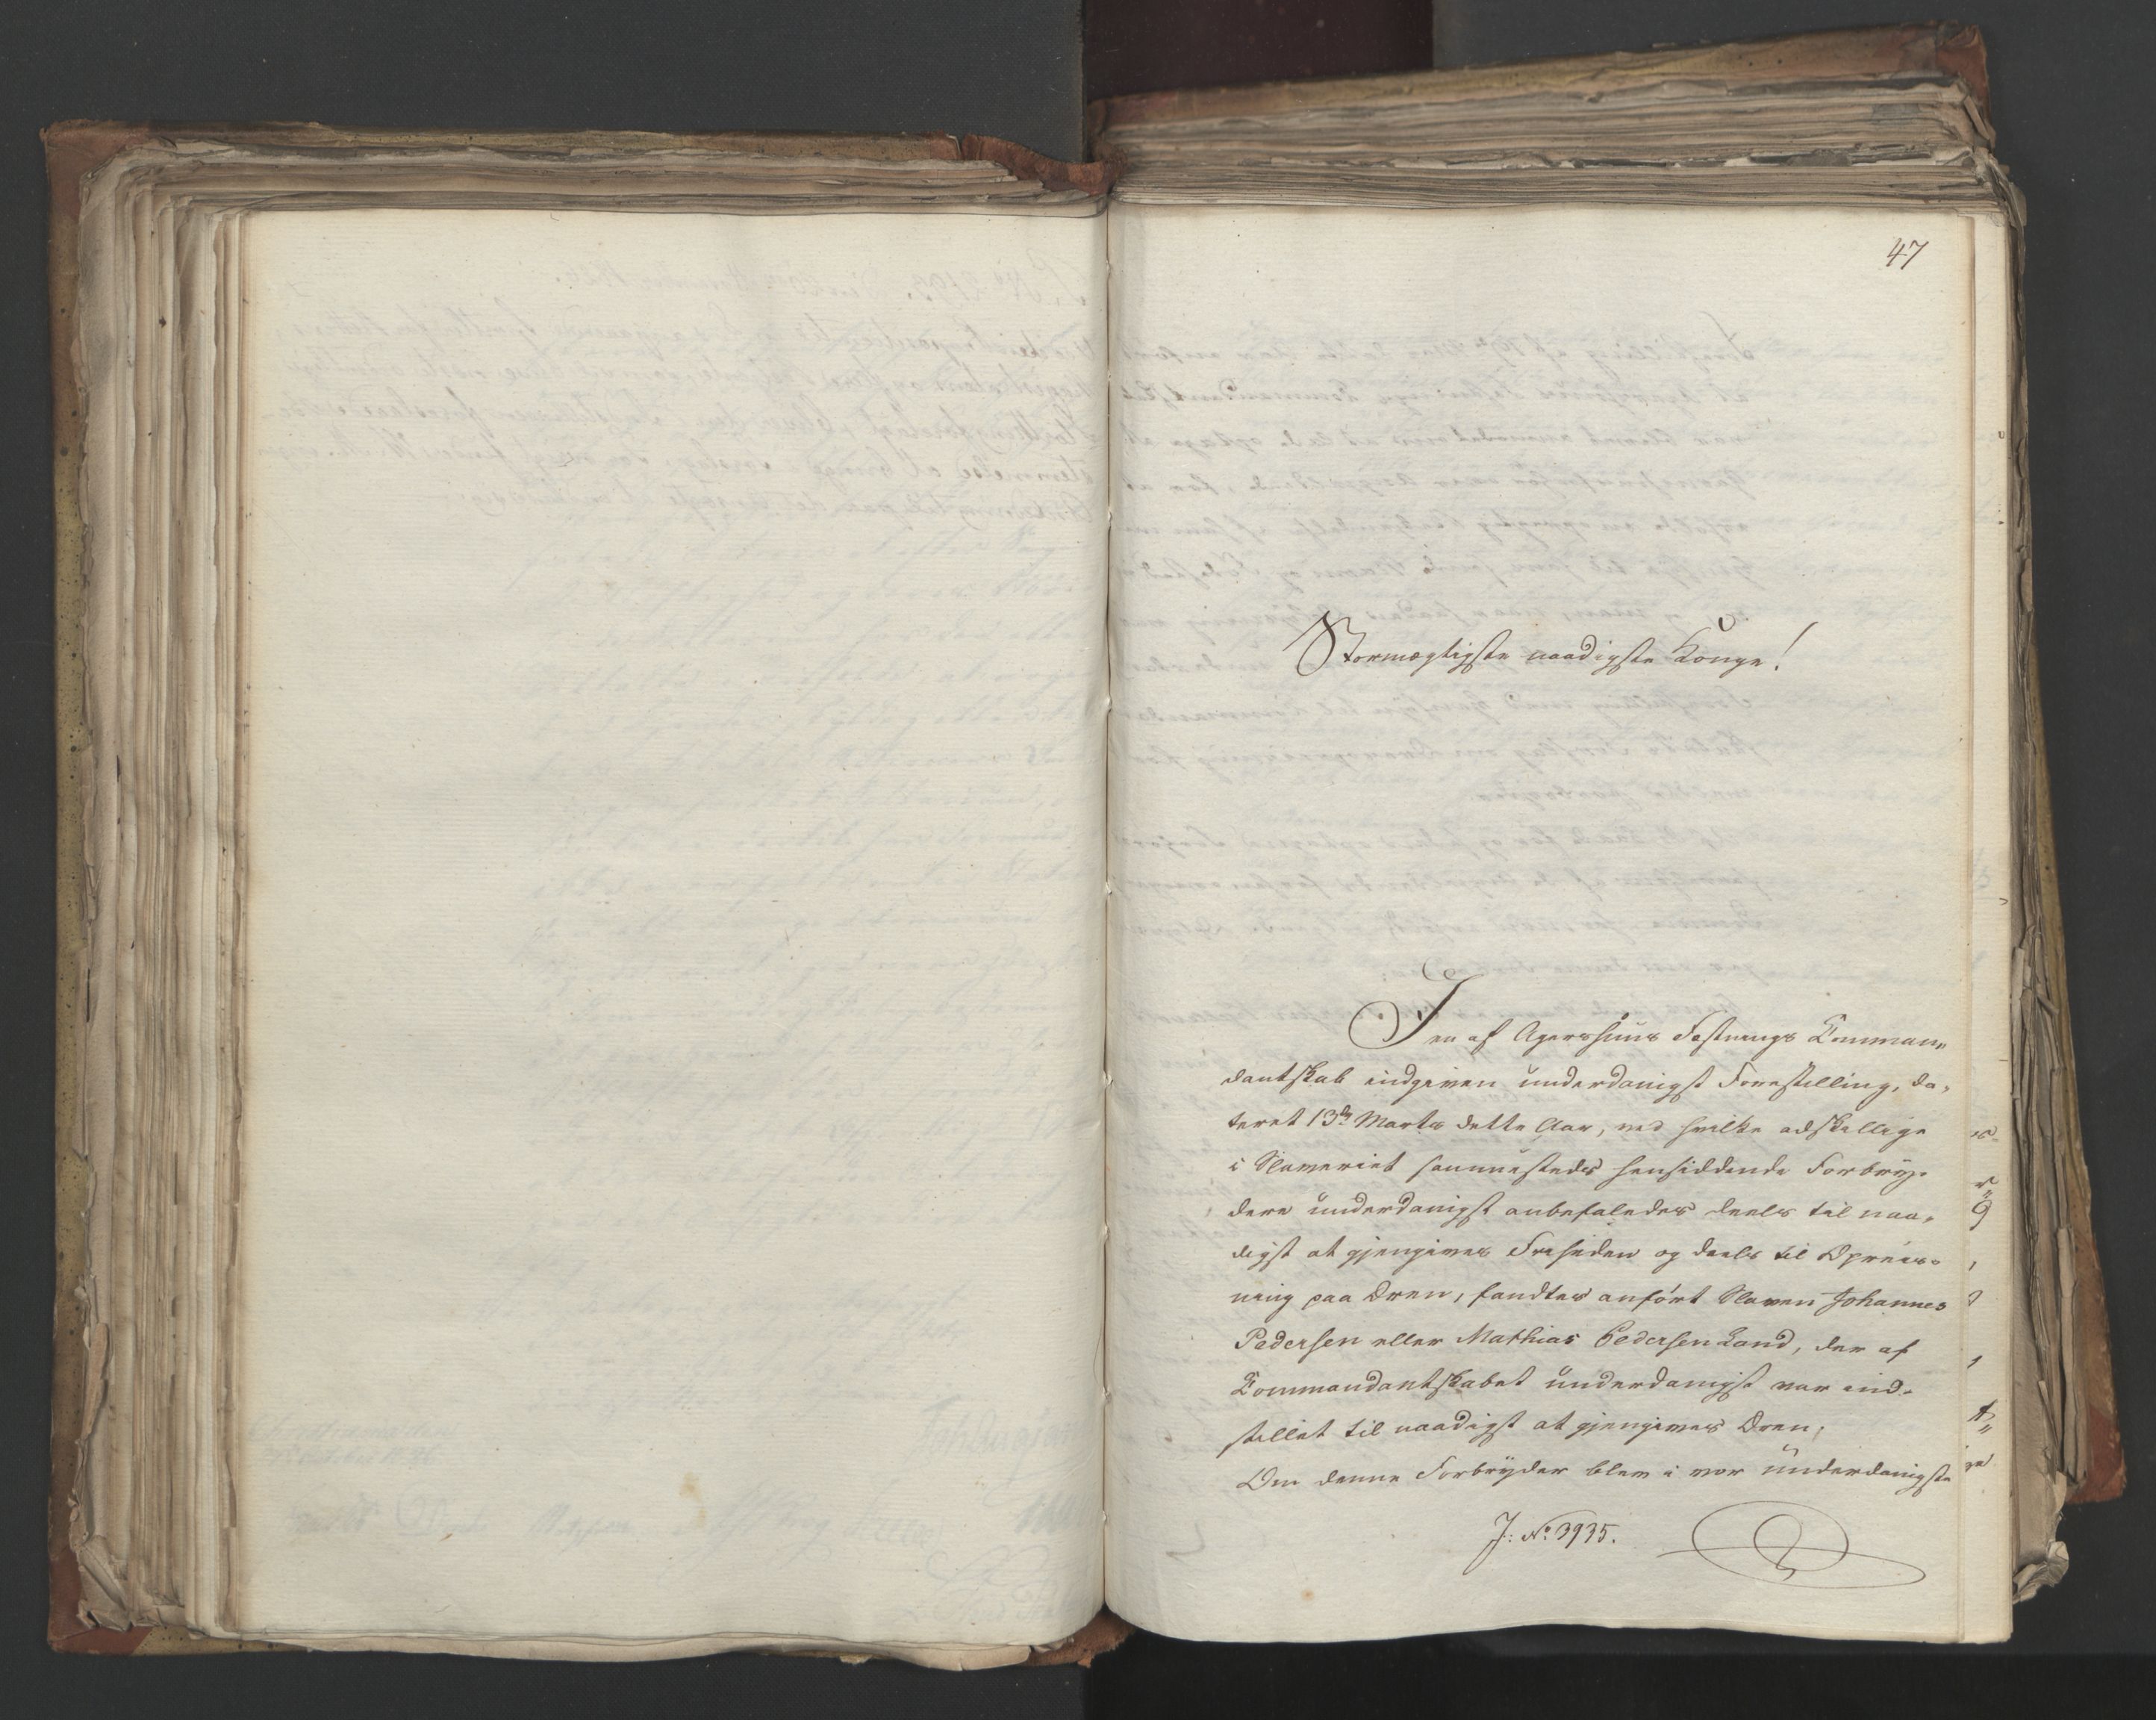 47
Stormægtigste naadigste Konge!
I en af Agershuus Festnings Comman„
dantskab indgiven underdanigst Forestilling, da„
teret 13de Marts dette Aar, ved hvilke adskillige
i Slaveriet sammesteds hensiddende Forbry„
dere underdanigst anbefaledes deels til naa„
digst at gjengives Friheden og deels til Opreis„
ning paa Æren, fandtes anført Slaven Johannes
Pedersen eller Mathias Pedersen Land, der af
Commandantskabet underdanigst var ind„
stillet til naadigst at gjengives Æren;
Om denne Forbryder blev i vor underdanigste
J: No 3935.